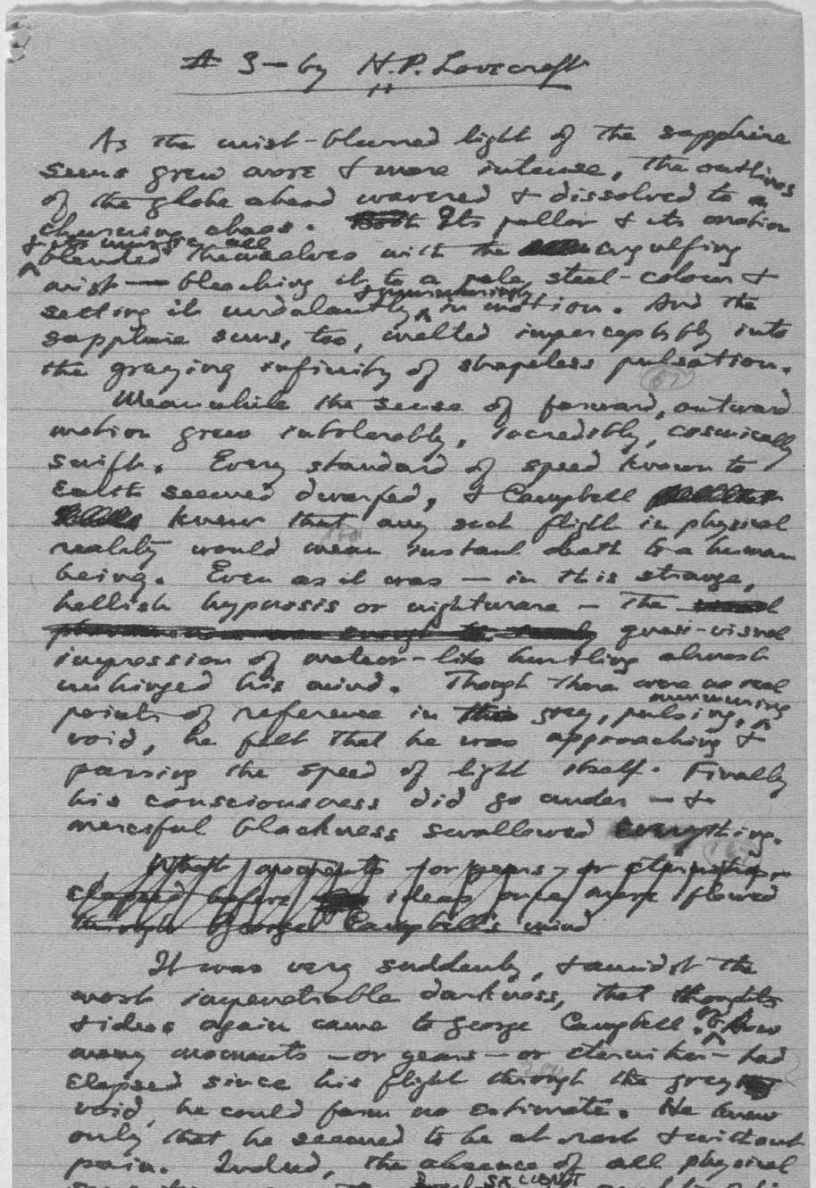 # 3 — by H.P. Lovecraft
As the mist-blurred light of the sapphire
suns grew more & more intense, the outlines
of the globe ahead wavered & dissolved to a
churning chaos. Its pallor & its motion
& its music all
blended themselves with the engulfing
mist — bleaching it to a pale steel-colour &
setting it undulantly & in motion. And the
sapphire suns, too, melted imperceptibly into
the graying infinity of shapeless pulsation.
Meanwhile the sense of forward, outward
motion grew intolerably, incredibly, cosmically
swift. Every standard of speed known to
Earth seemed dwarfed, & Campbell
knew that any such flight in physical
reality would mean instant death to a human
being. Even as it was — in this strange,
hellish hypnosis or nightmare — the
quasi-visual
impression of meteor-like hurtling almost
unhinged his mind. Though there were no real
points of reference in the grey, pulsing,
void, he felt that he was approaching &
passing the speed of light itself. Finally
his consciousness did go under — &
merciful blackness swallowed everything.
What moments - or years - or eternities
elapsed before ideas once more flowed
through George Campbell's mind
It was very suddenly, & amidst the
most impenetrable darkness, that thoughts
& ideas again came to George Campbell. Of how
many moments — or years — or eternities — had
elapsed since his flight through the grey
void, he could form no estimate. He knew
only that he seemed to be at rest & without
pain. Indeed, the absence of all physical
salient